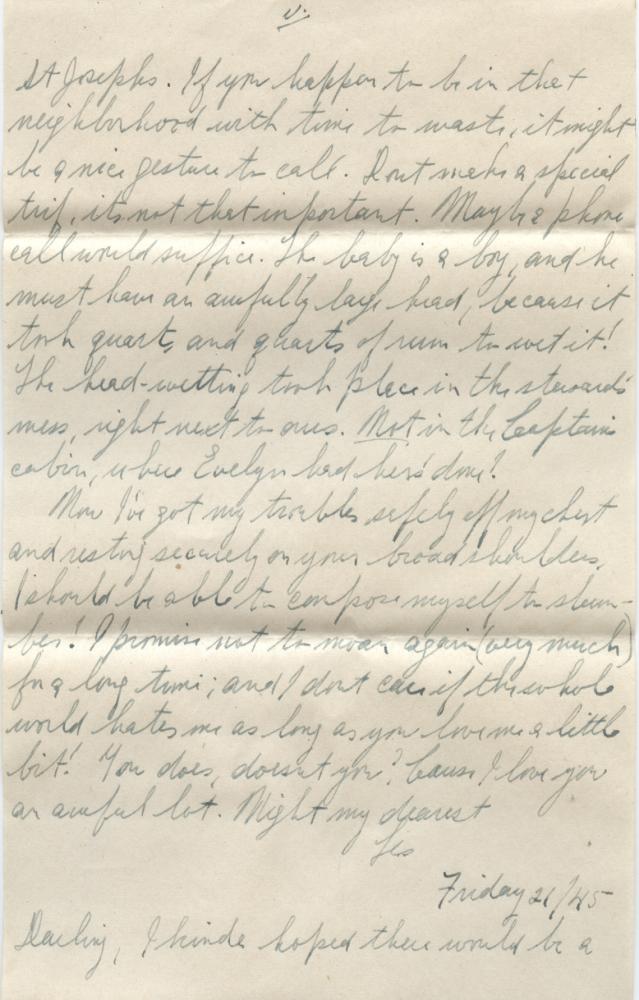 V.
St Josephs. If you happen to be in that
neighborhood with time to waste, it might
be a nice gesture to call. Dont make a special
trip, its not that important. Maybe a phone
call would suffice. The baby is a boy, and he
must have an awfully large head, because it
took quarts and quarts of rum to wet it!
The head-wetting took place in the stewards
mess, right next to ours. Not in the Captains
cabin, where Evelyn had hers done!
Now I've got my troubles safely off my chest
and resting securely on your broad shoulders,
I should be able to compose myself to slum-
ber! I promise not to moan again (very much)
for a long time; and I dont care if the whole
world hates me as long as you love me a little
bit! You does, doesnt you? Cause I love you
an awful lot. Night my dearest
Les
Friday 21/45
Darling, I kinda hoped there would be a